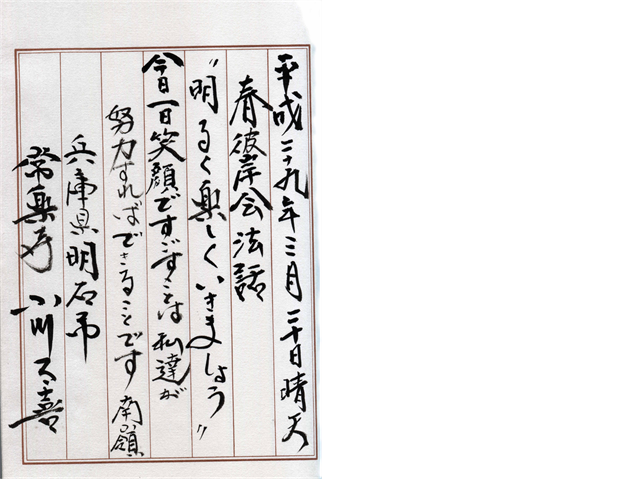 平成二十九年三月二十日晴天
春彼岸会法話
"明るく楽しくいきましょう"
今日一日笑顔ですごすことは私達が
努力すればできることです 南嶺
兵庫県明石市
常楽寺 小川 喜